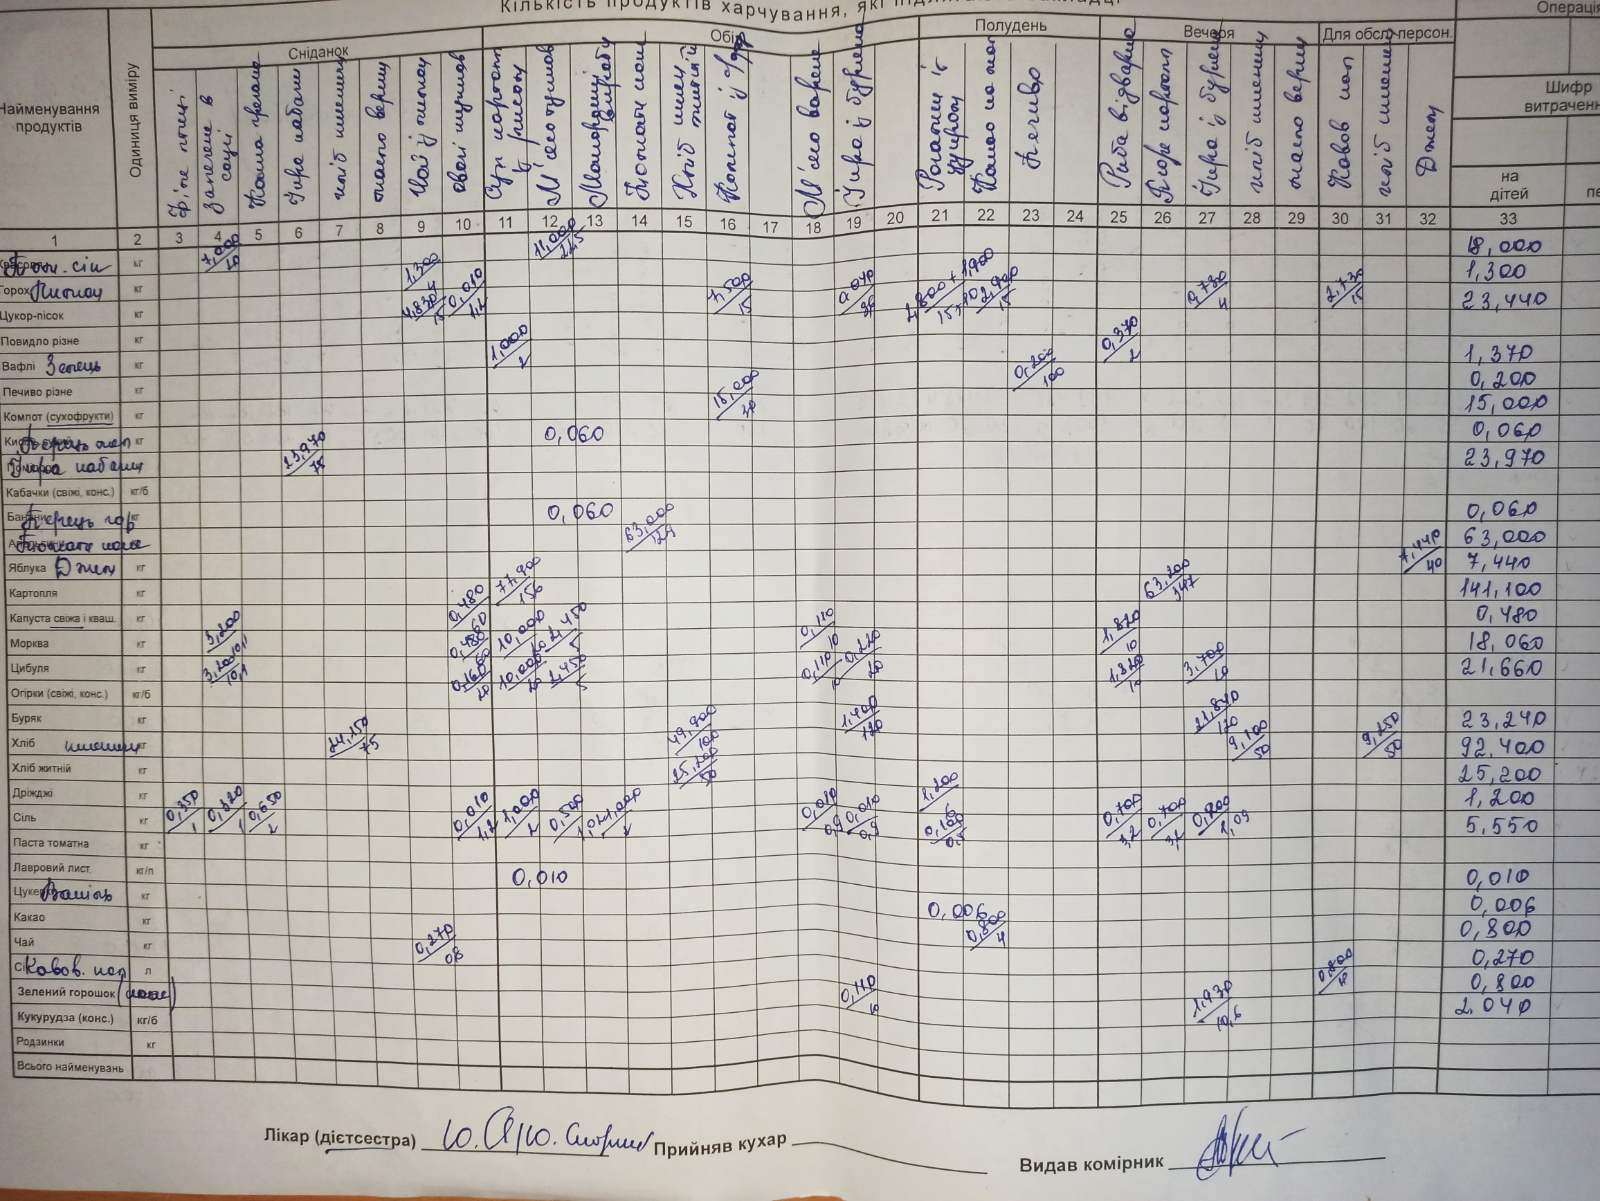 Кількість продуктів харчування, які
Операція
Найменування продуктів
Одиниця виміру
Сніданок
Обід
Полудень
Вечеря
Для обслу. персон.
Шифр
витрачення
на дітей
Філе птиці
запечене в соусі
Каша гречана
Ікра кабачк
хліб пшенич
масло верш
Чай із лимон
овочі тушков
М'ясо тушков
Макаронні вироби
Томати мол
Компот із с/фр
М'ясо варене
Ікра із буряка
Какао на мол
Печиво
Риба відварна
Пюре картоп
Ікра із буряка
хліб пшенич
масло верш
Кавов нап
хліб пшенич
Джем
1 2 3 4 5 6 7 8 9 10 11 12 13 14 15 16 17 18 19 20 21 22 23 24 25 26 27 28 29 30 31 32 33
Том. сік кг 7,000/20 11,000/21,5 18,000
Горох Лимон кг 1,300/4 1,300
Цукор-пісок кг 4,830/15 0,010/1,2 7,500/15 4,800+1,900 2,900/15 0,730/4 2,730/15 23,440
Повидло різне кг
Вафлі Зелень кг 1,000/2 0,370/2 1,370
Печиво різне кг 0,200/100 0,200
Компот (сухофрукти) кг 15,000/30 15,000
Перець мел кг 0,060 0,060
Ікра кабачк кг 23,970/75 23,970
Кабачки (свіжі, конс.) кг/б
Перець гор кг 0,060 0,060
Томати мол 63,000/125 63,000
Яблука Джем кг 7,440/40 7,440
Картопля кг 77,900/156 63,200/347 141,100
Капуста свіжа і кваш. кг 0,480/60 0,480
Морква кг 3,200 0,480 10,000/20 2,450/5 0,110/10 1,820/10 18,060
Цибуля кг 3,200/10,1 0,160/20 10,000/20 2,450/5 0,110/10 0,220/20 1,820/10 3,700/10 21,660
Огірки (свіжі, конс.) кг/б
Буряк кг 1,400/120 21,840/120 23,240
Хліб пшенич кг 24,150/75 49,900/100 9,100/50 9,250/50 92,400
Хліб житній кг 25,200/50 25,200
Дріжджі кг 1,200/6 1,200
Сіль кг 0,350/1 0,320/1 0,650/2 0,010/1,2 1,000/2 0,500/1 1,000/2 0,010/0,9 0,010/0,9 0,100/0,5 0,700/3,2 0,700/3,1 0,200/1,09 5,550
Паста томатна кг
Лавровий лист. кг/п 0,010 0,010
Ваніль кг 0,006 0,006
Какао кг 0,800/4 0,800
Чай кг 0,270/08 0,270
Кавов. нап л 0,800/4 0,800
Зелений горошок кг 0,110/10 1,930/10,6 2,040
Кукурудза (конс.) кг/б
Родзинки кг
Всього найменувань
Лікар (дієтсестра)
Прийняв кухар
Видав комірник